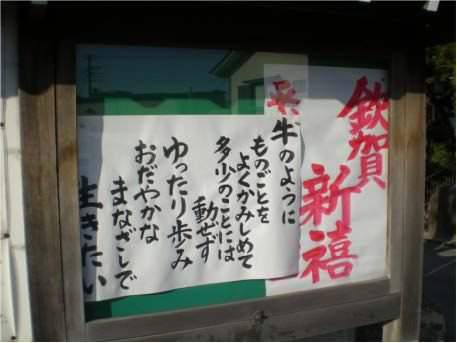 欽賀
新禧
牛のように
ものごとを
よくかみしめて
多少のことには
動ぜず
ゆったり歩み
おだやかな
まなざしで
生きたい